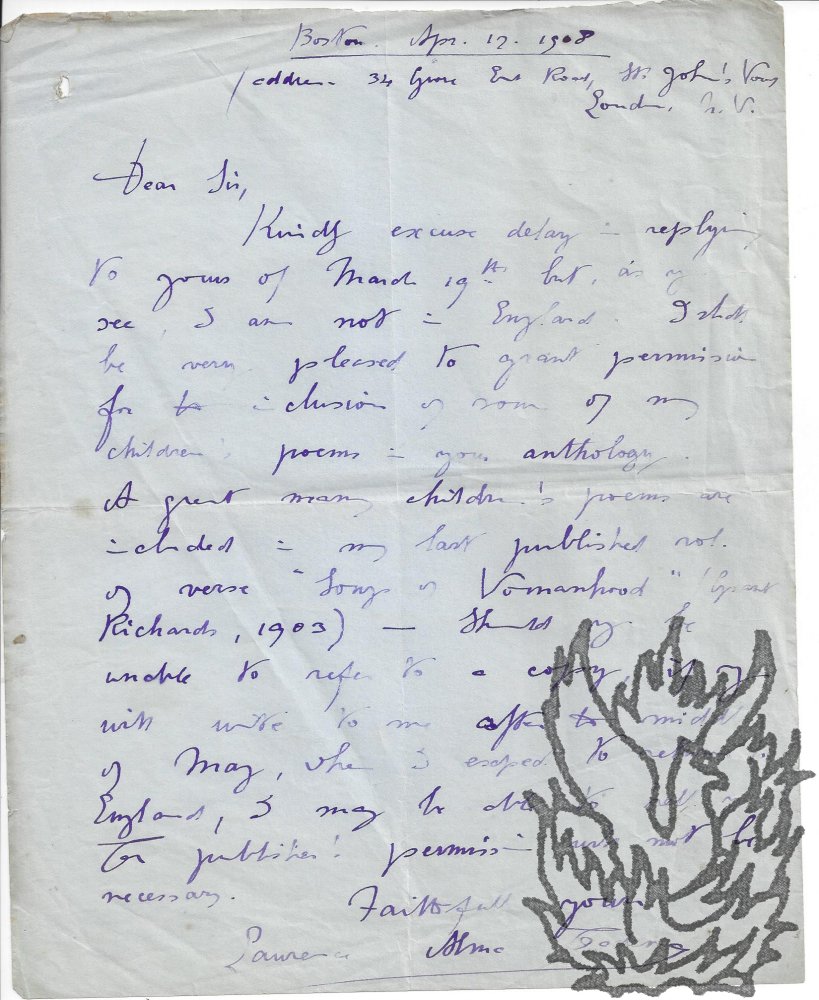 Boston. Apr. 17. 1908
address 34 Grove End Road, St. John's Wood
London, N. W.
Dear Sir,
Kindly excuse delay in replying
to yours of March 19th but, as you
see, I am not in England. I shall
be very pleased to grant permission
for inclusion of some of my
children's poems in your anthology.
A great many children's poems are
included in my last published vol.
of verse "Songs of Womanhood" (Grant
Richards, 1903) — Should you be
unable to refer to a copy, if you
will write to me after middle
of May, when I expect to return
England, I may be able to
The publishers' permission will not be
necessary.
Faithfully yours
Laurence Alma Tadema